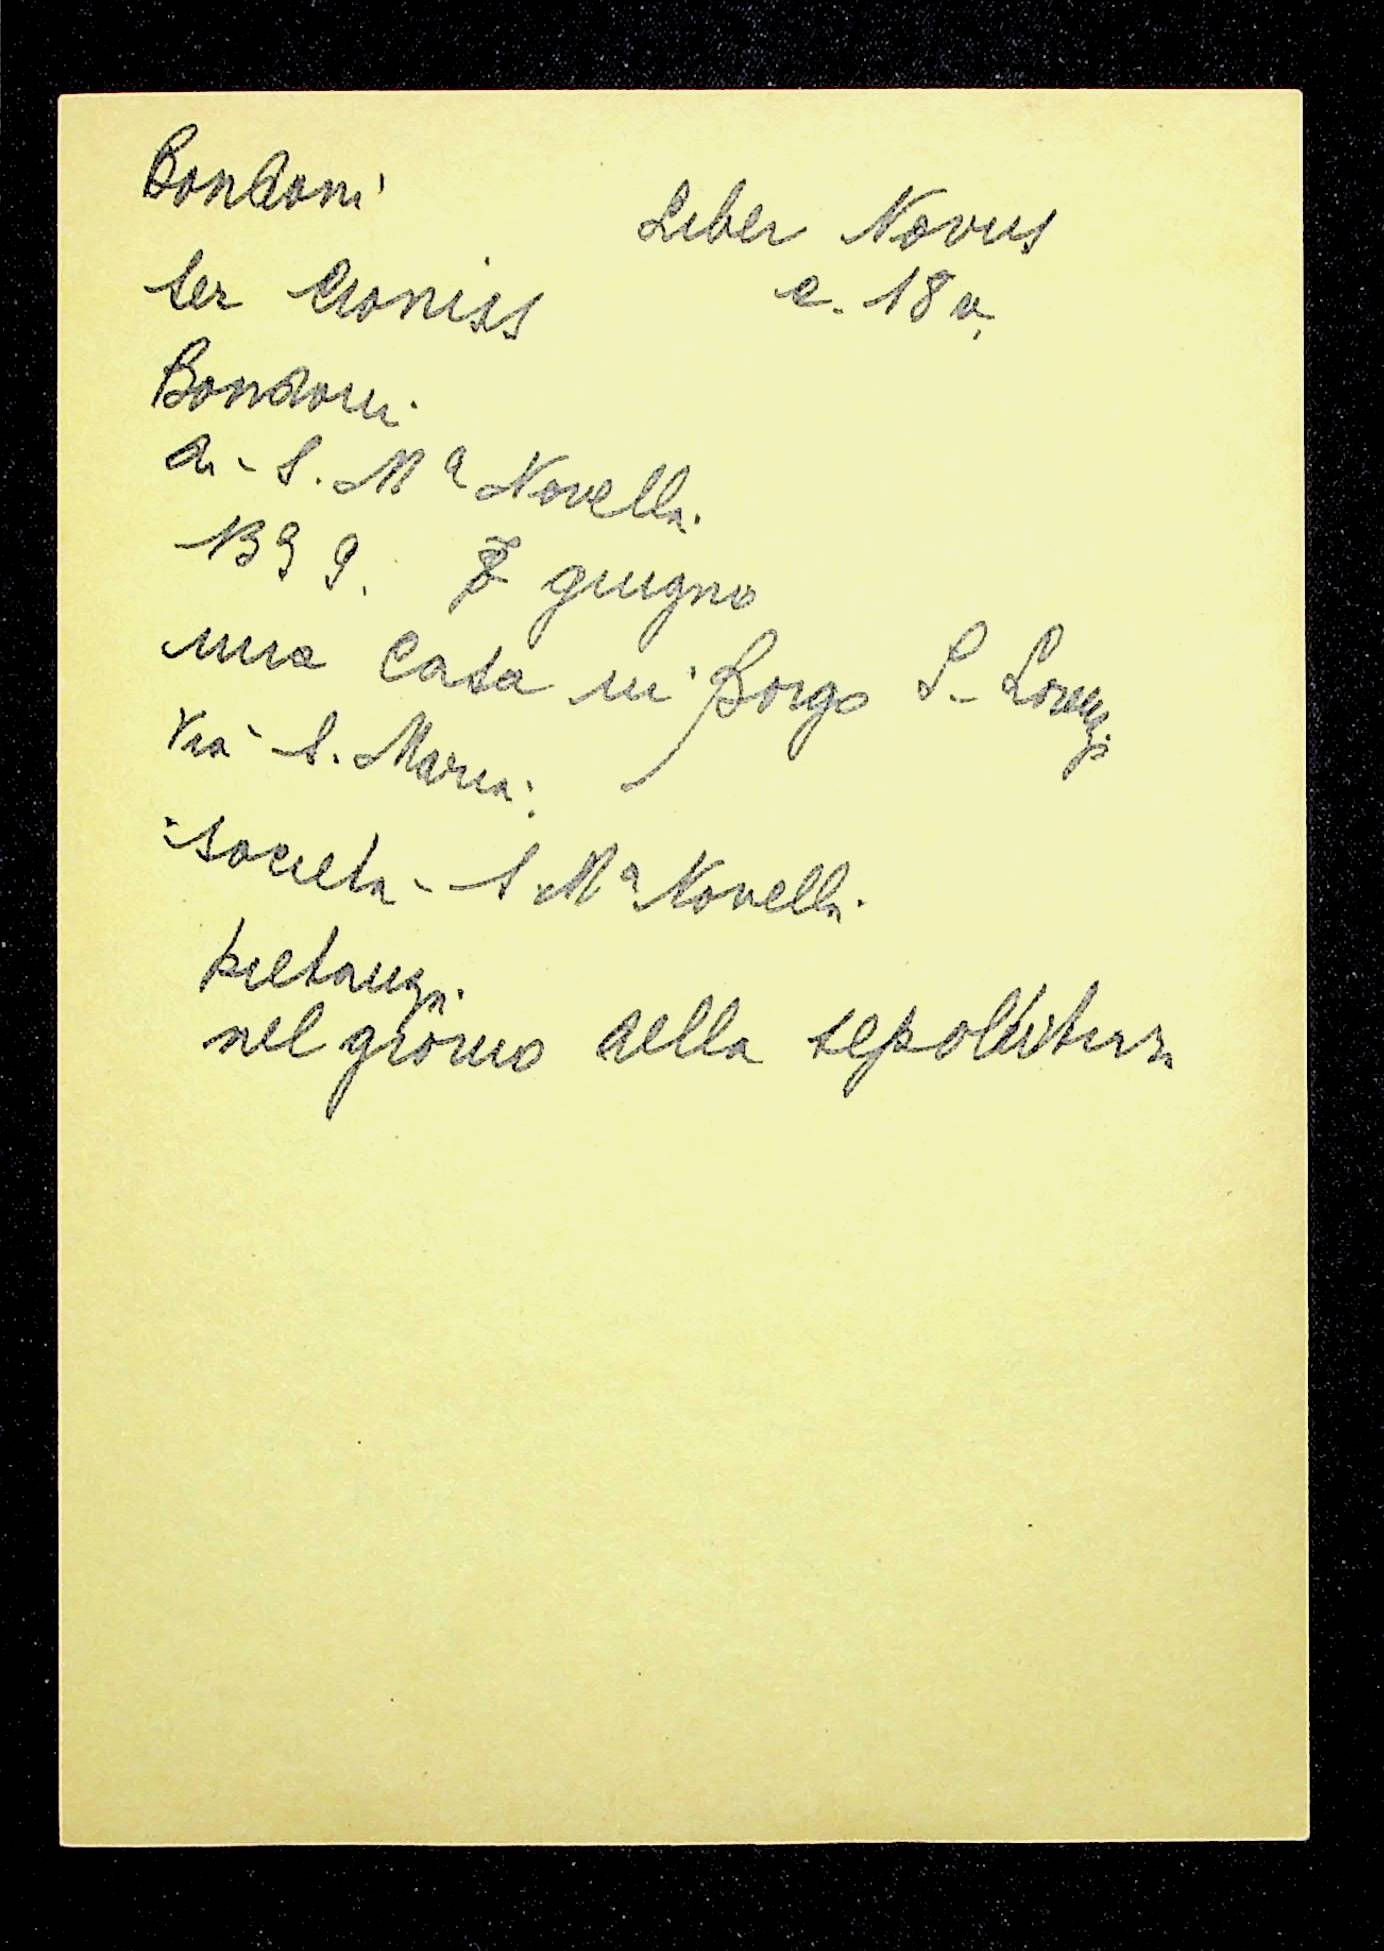 Bondoni
Liber Novus
ser Cioniss
c. 18 v.
Bondoni
di S. Mª Novella.
1399. 7 giugno
una casa in Borgo S. Lorenzo
Via S. Maria.
società S. Mª Novella.
pietanza.
nel giorno della sepoltura